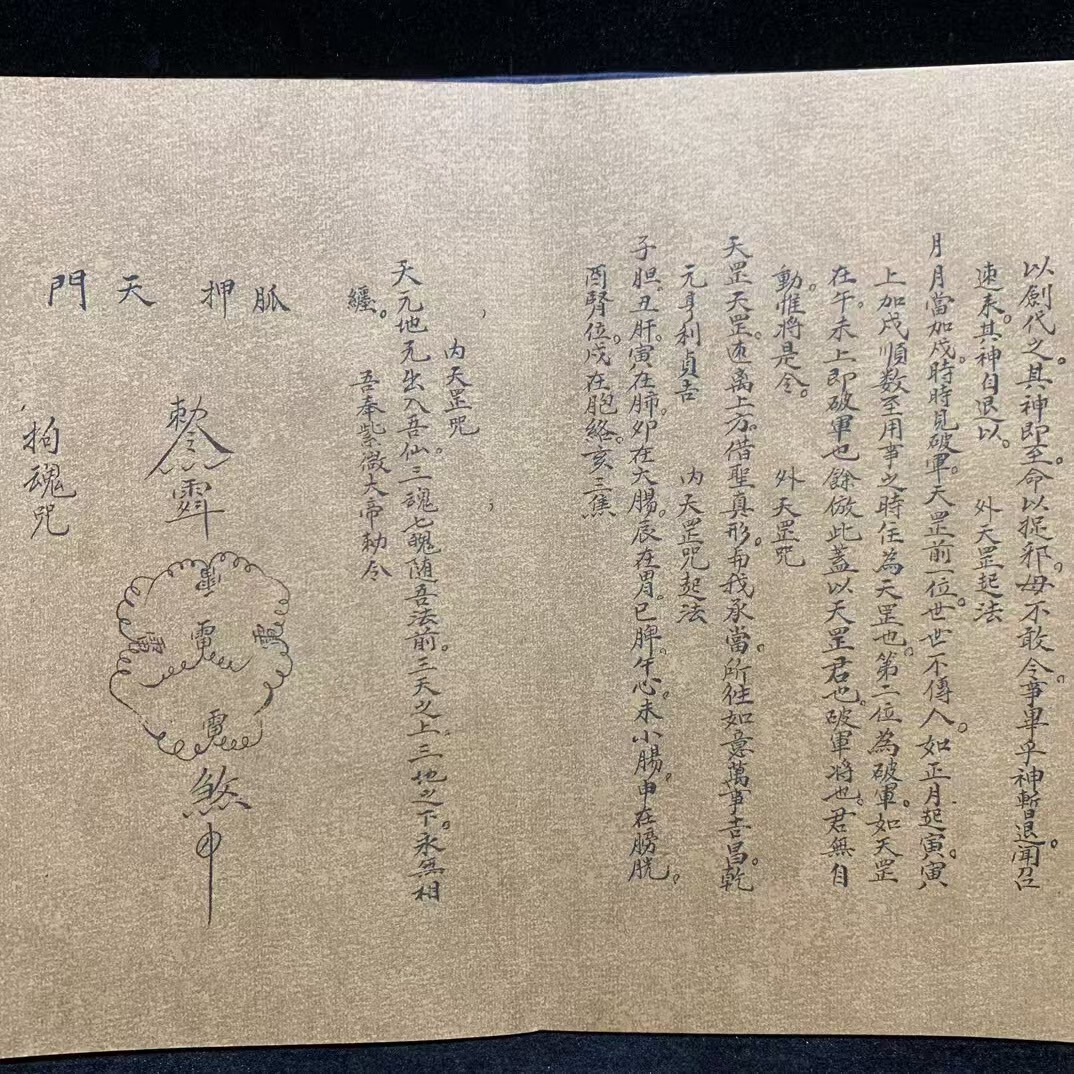 以劍代之。其神即至。命以捉邪。毋不敢令。事畢乎神暫退。聞召
速来。其神自退以。 外天罡起法
月月當加戍。時時見破軍。天罡前一位。世世不傳人。如正月起寅。寅
上加戍順数至用事之時住為天罡也。第二位為破軍。如天罡
在午。未上即破軍也餘倣此蓋以天罡君也。破軍将也。君無自
動。惟将是令。 外天罡咒
天罡天罡。速离上方。借聖真形。与我承當。所往如意萬事吉昌。乾
元亨利貞吉 内天罡咒起法
子胆。丑肝。寅在肺。夘在大腸。辰在胃。巳脾。午心。未小腸。申在膀胱。
酉腎位。戍在胞絡。亥三焦
内天罡咒
天元地元出入吾仙。三魂七魄随吾法前。三天之上。三地之下。永無相
纏。 吾奉紫微大帝勅令
脈押天門
勅令
雷
雷
煞
申
拘魂咒